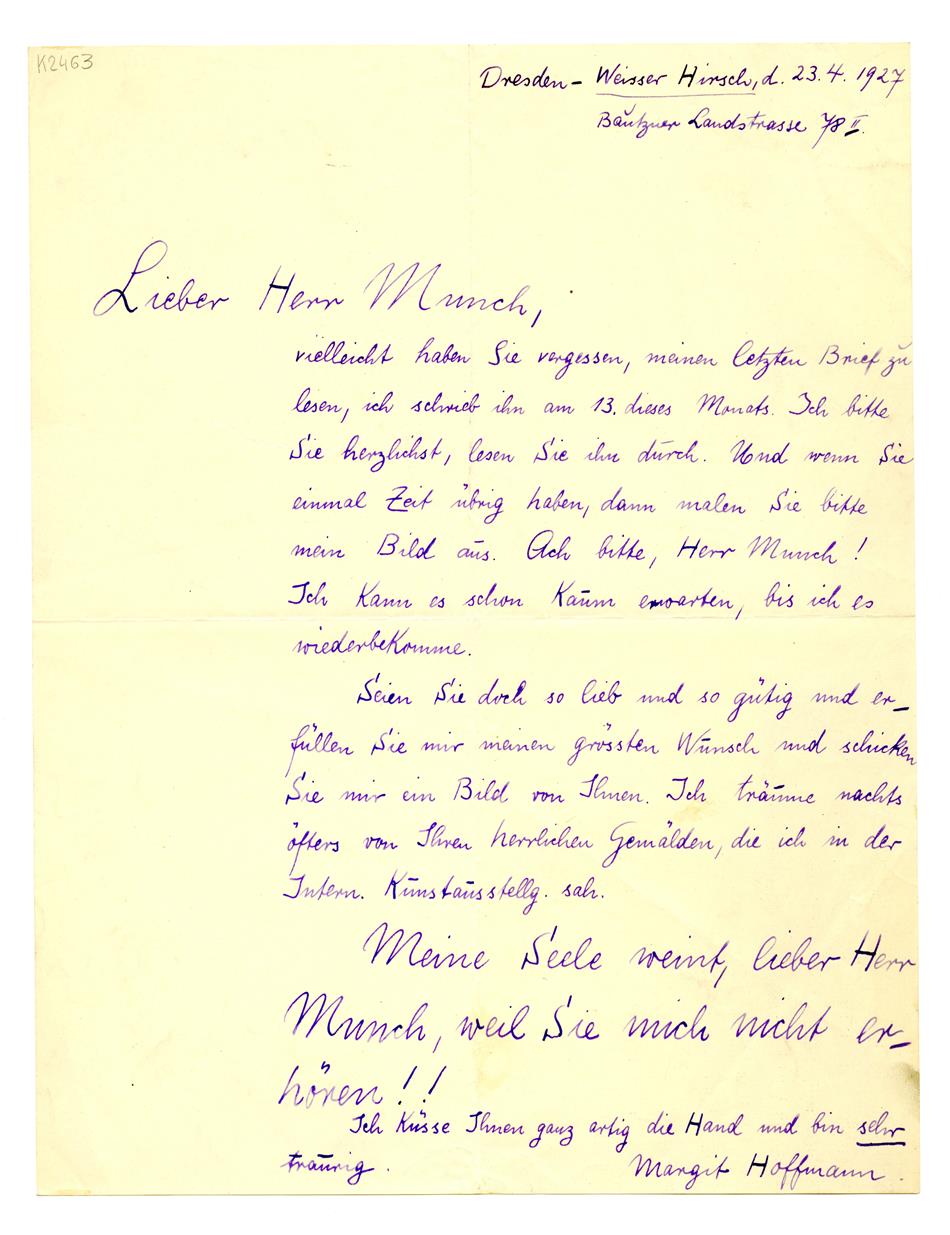 K2463
Dresden - Weisser Hirsch, d. 23.4.1927
Bautzner Landstrasse 78 II.
Lieber Herr Munch,
vielleicht haben Sie vergessen, meinen letzten Brief zu
lesen, ich schrieb ihn am 13. dieses Monats. Ich bitte
Sie herzlichst, lesen Sie ihn durch. Und wenn Sie
einmal Zeit übrig haben, dann malen Sie bitte
mein Bild aus. Ach bitte, Herr Munch!
Ich kann es schon kaum erwarten, bis ich es
wiederbekomme.
Seien Sie doch so lieb und so gütig und er-
füllen Sie mir meinen grössten Wunsch und schicken
Sie mir ein Bild von Ihnen. Ich träume nachts
öfters von Ihren herrlichen Gemälden, die ich in der
Intern. Kunstausstellg. sah.
Meine Seele weint, lieber Herr
Munch, weil Sie mich nicht er-
hören!!
Ich küsse Ihnen ganz artig die Hand und bin sehr
traurig.
Margit Hoffmann.